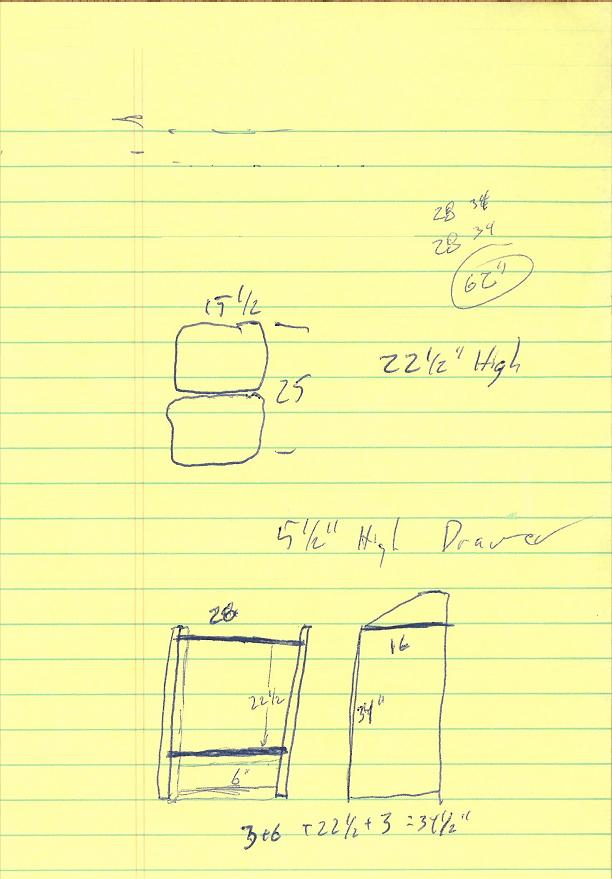 28 34
28 34
62"
15 1/2
22 1/2" High
25
5 1/2" High Drawer
28
16
22 1/2
34"
6"
3+6 +22 1/2+3 =34 1/2"